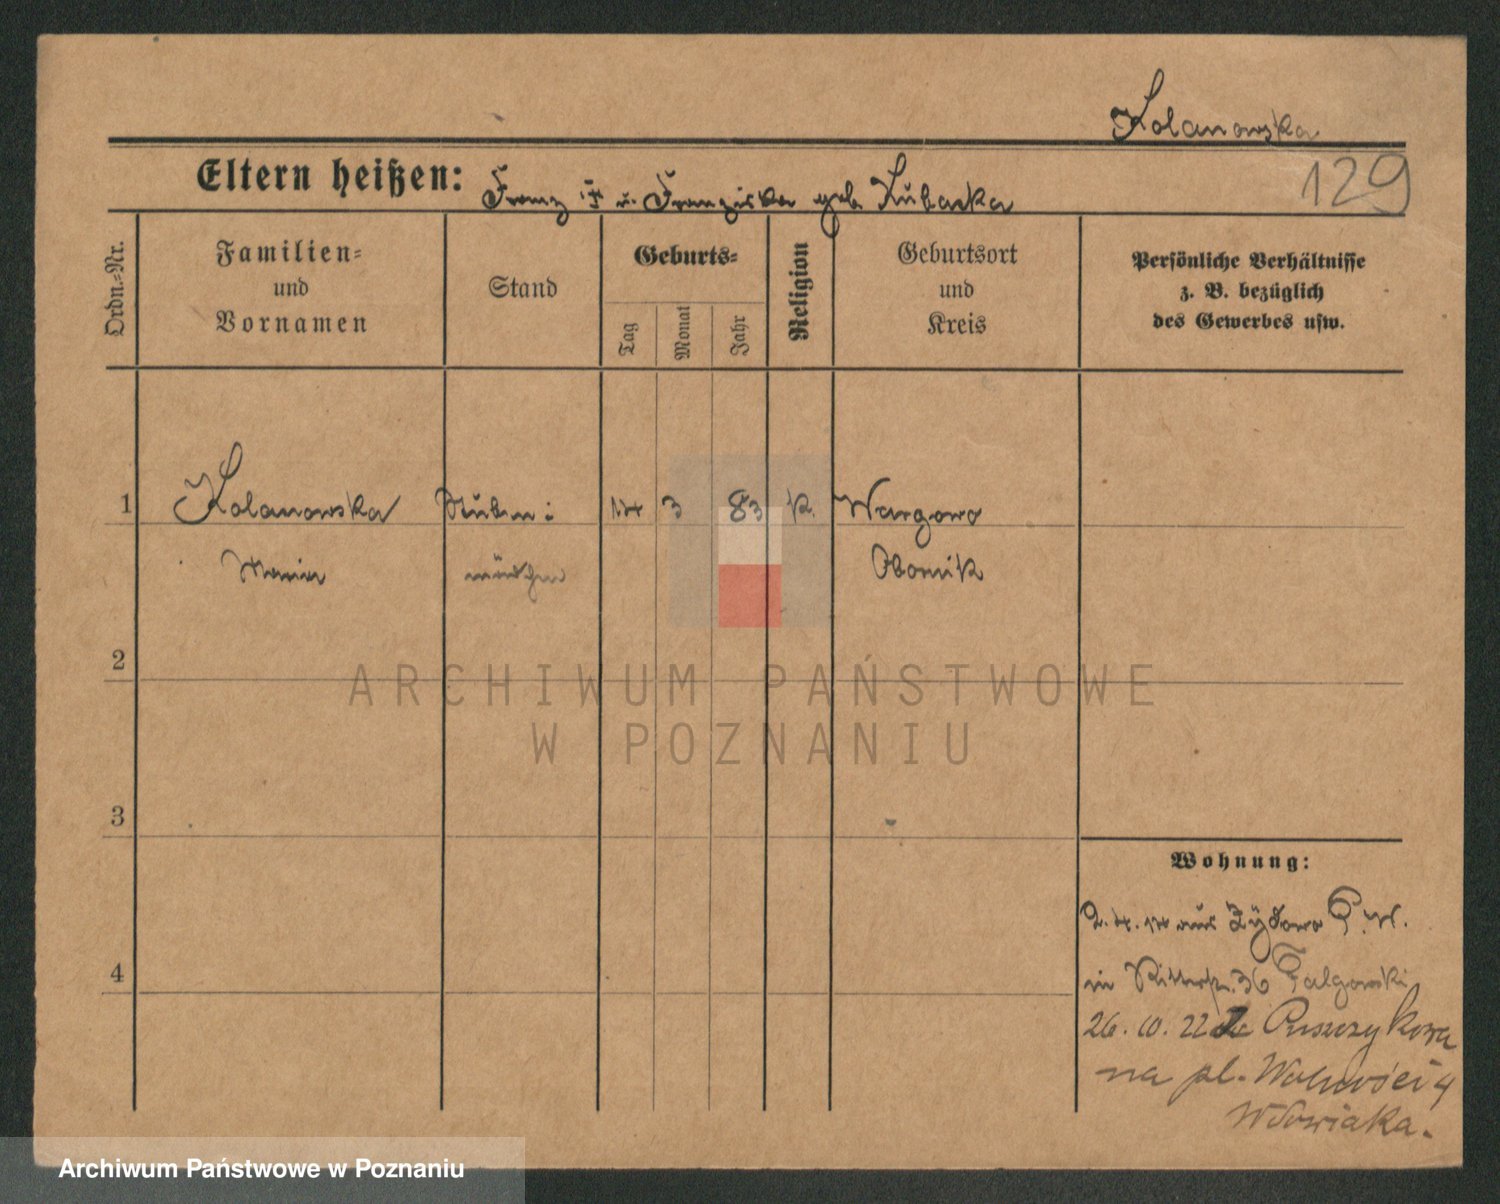 Kolanowska
129
Eltern heißen: Franz u. Franziska geb. Kubacka
Ordn.-Nr.
Familien-
und
Vornamen
Stand
Geburts-
Tag
Monat
Jahr
Religion
Geburtsort
und
Kreis
Persönliche Verhältnisse
z. B. bezüglich
des Gewerbes usw.
1 Kolanowska Stuben: 14 3 83 k. Wargowo
Maria mädchen Obornik
2
3
4
Wohnung:
2.4.14 aus Żydowo P. W.
in Ritterstr. 36 Falgowski
26.10.22 z Puszczykowa
na pl. Wolności 4
Włowiaka.
ARCHIWUM PAŃSTWOWE
W POZNANIU
Archiwum Państwowe w Poznaniu